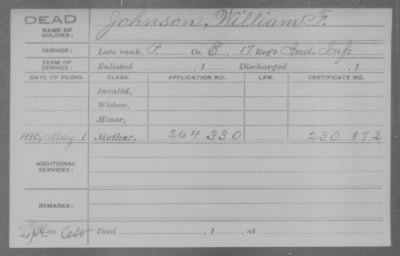 DEAD
NAME OF SOLDIER: Johnson, William F.
SERVICE: Late rank, P. Co. E, 17 Reg't Ind. Inf.
TERM OF SERVICE: Enlisted , 1 Discharged , 1
DATE OF FILING. CLASS. APPLICATION NO. LAW. CERTIFICATE NO.
Invalid,
Widow,
Minor,
1880, May 1 Mother, 264 330 230 872
ADDITIONAL SERVICES:
REMARKS:
Died , 1 , at